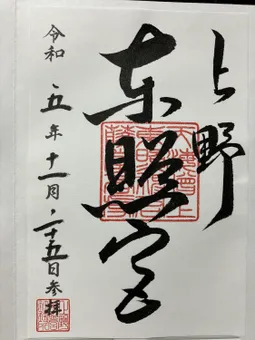 上野
東照宮
令和五年十一月二十五日参拝